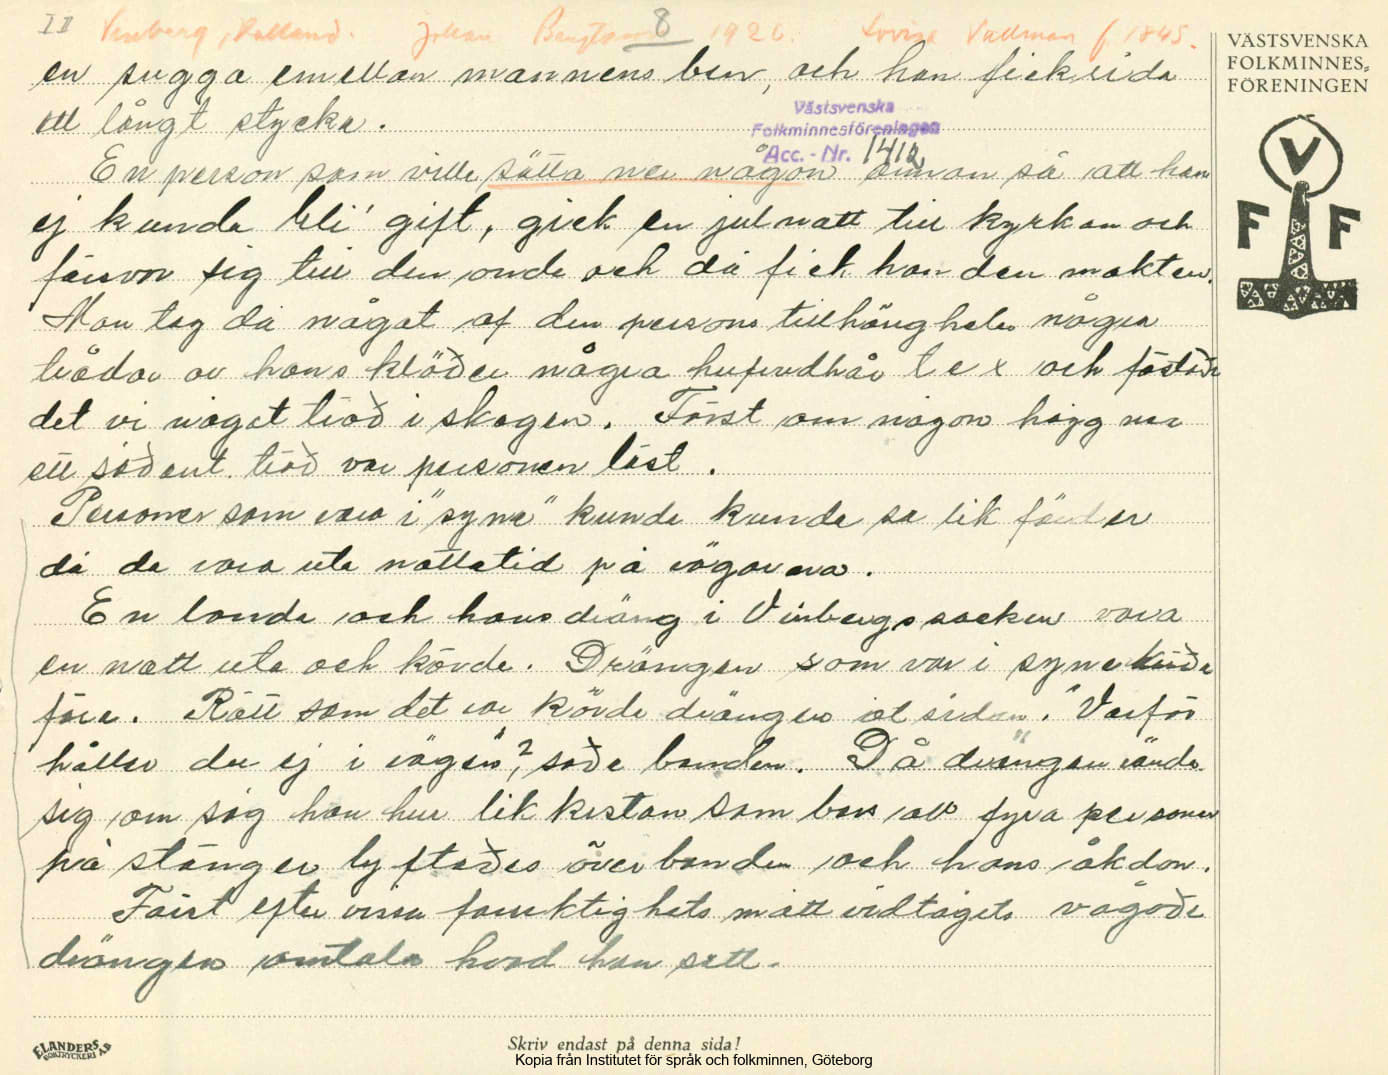 II Vinberg, Halland. Johan Bengtsson 8 1926. Lovisa Vallman f. 1845.
VÄSTSVENSKA
FOLKMINNES-
FÖRENINGEN
en sugga emellan mannens ben, och han fick rida
ett långt stycke.
Västsvenska
Folkminnesföreningen
Acc. - Nr. 1412
En person som ville sätta ner någon annan så att han
ej kunde bli' gift, gick en julnatt till kyrkan och
försvor sig till den onde och då fick han den makten.
Man tog då något af den persons tillhörigheter några
trådar av hans kläder några hufvudhår t e x och fäste
det vi något träd i skogen. Först om någon högg ner
ett sådant träd var personen löst.
Personer som voro i "syne" kunde kunde se lik färder
då de voro ute nattetid på vägarna.
En bonde och hans dräng i Vinbergs socken voro
en natt ute och körde. Drängen som var i syne körde
före. Rätt som det var körde drängen åt sidan. "Varför
håller du ej i vägen"? sade bonden. Då drängen vände
sig om såg han hur lik kistan som bars av fyra personer
på stänger lyftades över bonden och hans åkdon.
Först efter vissa försiktighets mått vidtagits vågade
drängen omtala hvad han sett.
V
F F
ELANDERS
BOKTRYCKERI A.B
Skriv endast på denna sida!
Kopia från Institutet för språk och folkminnen, Göteborg